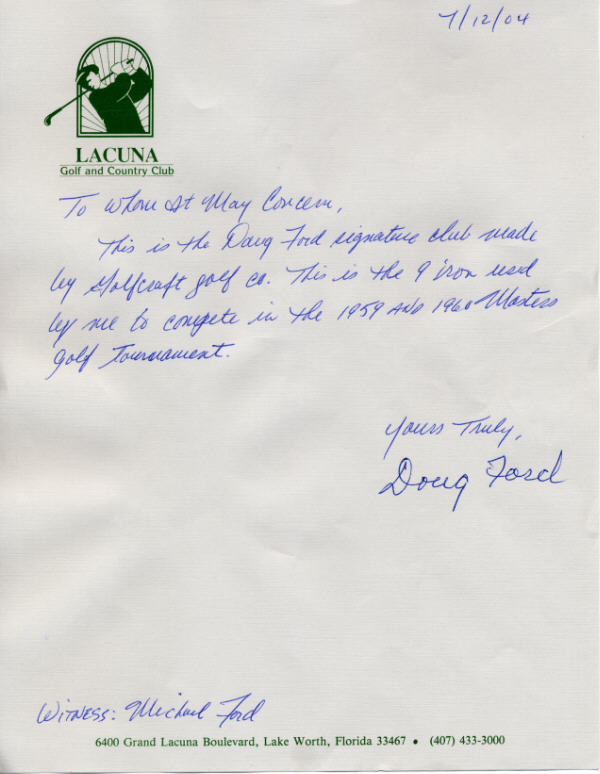 7/12/04
LACUNA
Golf and Country Club
To Whom It May Concern,
This is the Doug Ford signature club made
by Golfcraft golf co. This is the 9 iron used
by me to compete in the 1959 AND 1960 Masters
golf Tournament.
Yours Truly,
Doug Ford
WITNESS: Michael Ford
6400 Grand Lacuna Boulevard, Lake Worth, Florida 33467 • (407) 433-3000